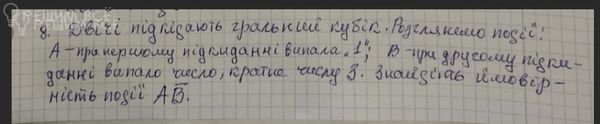 РЕШИМ ВСЕ
8. Двічі підкідають гральний кубік. Розглянемо події:
А - при першому підкиданні випала „1"; В - при другому підки-
данні випало число, кратне числу 3. Знайдіть ймовір-
ність події AB̅.